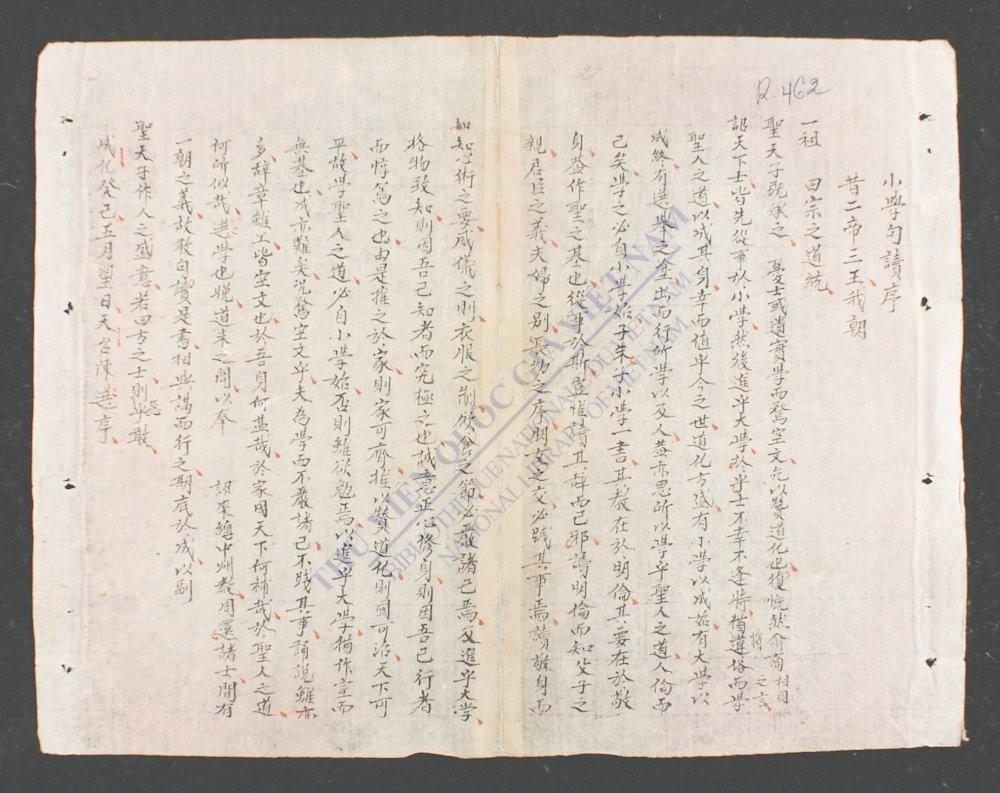 R.462
小學句讀序
昔二帝三王我朝
一祖 四宗之道統
聖天子既承之 憂士或遺實學而騖空文无以贊道化也復慨然命商相同
詔天下士皆先從事於小學然後進乎大學於乎士不幸不逢時猶遵格而學
將 之言
聖人之道以成其身幸而值乎今之世道化方盛有小學以成始有大學以
成終有選舉之途出而行所學以及人盍亦思所以學乎聖人之道人倫而
已矣學之必自小學始子朱子小學一書其教在於明倫其要在於敬
身蓋作聖之基也從事於斯豈惟讀其辭而已邪讀明倫而知父子之
親君臣之義夫婦之別長幼之序朋友之交必踐其事焉讀敬身而
知心術之要威儀之則衣服之制飲食之節必嚴諸己焉及進乎大學
格物致知則因吾已知者而究極之也誠意正心修身則因吾已行者
而惇篤之也由是推之於家則家可齊推以贊道化則國可治天下可
平故學聖人之道必自小學始否則雖欲勉焉以進乎大學猶作室而
無基也成亦難矣況騖空文乎夫為學而不嚴諸己不踐其事誦說雖亦
多辭章雖工皆空文也於吾身何益哉於家國天下何補哉於聖人之道
何所似哉選學也晚道未之聞以奉 詔來總中州教用還諸士閒有
一朝之義故敢句讀是書相與講而行之期底於成以副
聖天子作人之盛意若四方之士則 乎敢
成化癸巳五月望日天台陳選序
THƯ VIỆN QUỐC GIA VIỆT NAM
BIBLIOTHÈQUE NATIONALE DU VIETNAM
NATIONAL LIBRARY OF VIETNAM